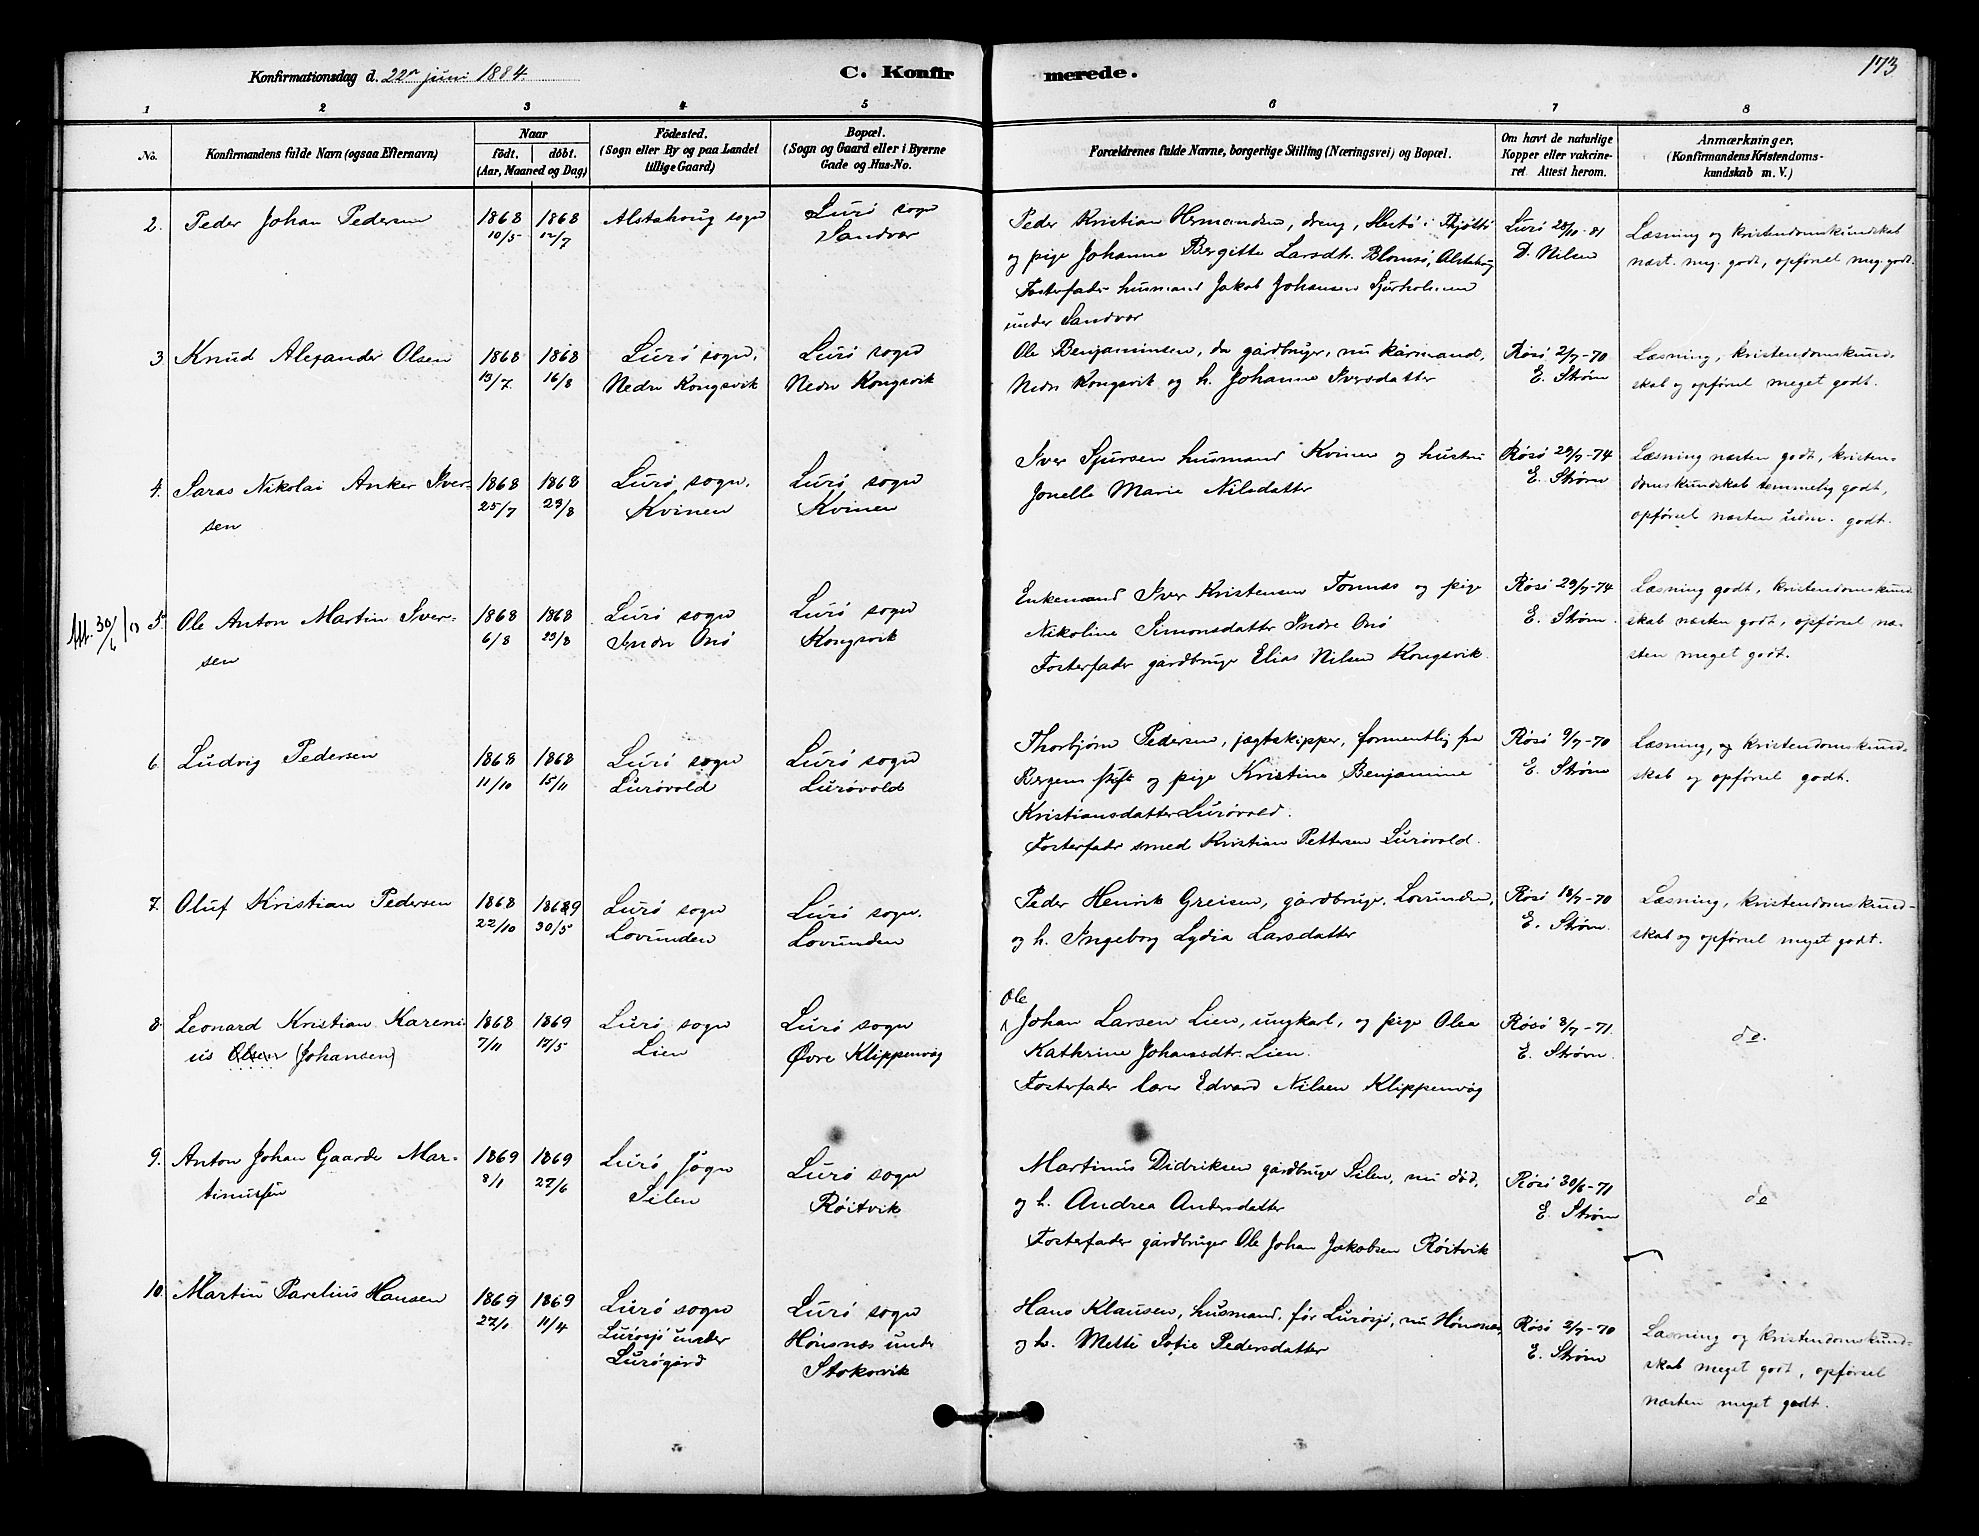 Konfirmationsdag d. 22n juni 1884.
C. Konfirmerede.
173
1 2 3 4 5 6 7 8
No.
Konfirmandens fulde Navn (ogsaa Efternavn)
Naar
födt. döbt.
(Aar, Maaned og Dag)
Födested.
(Sogn eller By og paa Landet
tillige Gaard)
Bopæl.
(Sogn og Gaard eller i Byerne
Gade og Hus-No.
Forældrenes fulde Navne, borgerlige Stilling (Næringsvei) og Bopæl.
Om havt de naturlige
Kopper eller vakcine-
ret. Attest herom.
Anmærkninger.
(Konfirmandens Kristendoms-
kundskab m. V.)
2. Peder Johan Pedersen
1868 10/5
1868 12/7
Alstahoug sogn
Lurö sogn
Sandvær
Peder Kristian Hermandsen, dreng, i Thjöttö
og pige Johanne Bergitte Larsdtr. Blomsö, Alstahoug
Fosterfader husmand Jakob Johansen Sjurholmen
under Sandvær
Lurö 28/10-81
D. Nilsen
Læsning og kristendomskundskab
næst. meg. godt, opförsel meg. godt.
3 Knud Alexander Olsen
1868 19/7.
1868 16/8
Lurö sogn,
Nedre Kongsvik
Lurö sogn
Nedre Kongsvik
Ole Benjaminsen, da gårdbruger, nu kårmand,
Nedre Kongsvik og h. Johanne Iversdatter
Rösö 2/7-70
E. Ström
Læsning, kristendomskund-
skab og opförsel meget godt.
4. Saras Nikolai Anker Iver-
sen
1868 25/7
1868 23/8
Lurö sogn.
Kvinen
Lurö sogn
Kvinen
Iver Sjursen husmand Kvinen og hustru
Jonelle Marie Nilsdatter
Rösö 29/7-74
E. Ström
Læsning næsten godt, kristen-
domskundskab temmelig godt,
opförsel næsten udm. godt.
Att. 30/6 10
5 Ole Anton Martin Iver-
sen
1868 6/8
1868 23/8
Lurö sogn
Indre Onö
Lurö sogn
Kongsvik
Enkemand Iver Kristensen Tonnes og pige
Nikoline Simonsdatter Indre Onö
Fosterfader gårdbruger Elias Nilsen Kongsvik
Rösö 29/7-74
E. Ström.
Læsning godt, kristendomskund-
skab næsten godt, opförsel næ-
sten meget godt.
6. Ludvig Pedersen
1868 11/10
1868 15/11
Lurö sogn
Lurövold
Lurö sogn
Lurövold
Thorbjörn Pedersen, jægtskipper, formentlig fra
Bergens stift og pige Kristine Benjamine
Kristiansdatter Lurövold.
Fosterfader smed Kristian Pettersen Lurövold.
Rösö 9/7-70
E. Ström
Læsning, og kristendomskund-
skab og opförsel godt.
7. Oluf Kristian Pedersen
1868 22/10
1869 30/5
Lurö sogn
Lovunden
Lurö sogn.
Lovunden
Peder Henrik Greisen, gårdbruger, Lovunden,
og h. Ingeborg Lydia Larsdatter
Rösö 18/7-70
E. Ström.
Læsning, kristendomskund-
skab og opförsel meget godt.
8. Leonard Kristian Kareni-
us Olsen (Johansen)
1868 7/11
1869 17/5
Lurö sogn
Lien
Lurö sogn
Övre Klippenvåg
Ole
Johan Larsen Lien, ungkarl, og pige Olea
Kathrine Johansdtr. Lien.
Fosterfader lærer Edvard Nilsen Klippenvåg
Rösö 8/7-71.
E. Ström.
do.
9. Anton Johan Gaarde Mar-
tinussen
1869 8/1
1869 27/6
Lurö sogn
Silen
Lurö sogn
Röitvik
Martinus Didriksen gårdbruger Silen, nu död,
og h. Andrea Andersdatter
Fosterfader gårdbruger Ole Johan Jakobsen Röitvik
Rösö 30/6-71
E. Ström
do
10. Martin Parelius Hansen
1869 27/1
1869 11/4
Lurö sogn
Lurösjö under
Lurögård
Lurö sogn
Hönsnæs under
Stokovik
Hans Klausen, husmand, för Lurösjö, nu Hönsnæs,
og h. Mette Sofie Pedersdatter
Rösö 2/7-70
E. Ström
Læsning og kristendomskund-
skab meget godt, opförsel
næsten meget godt.